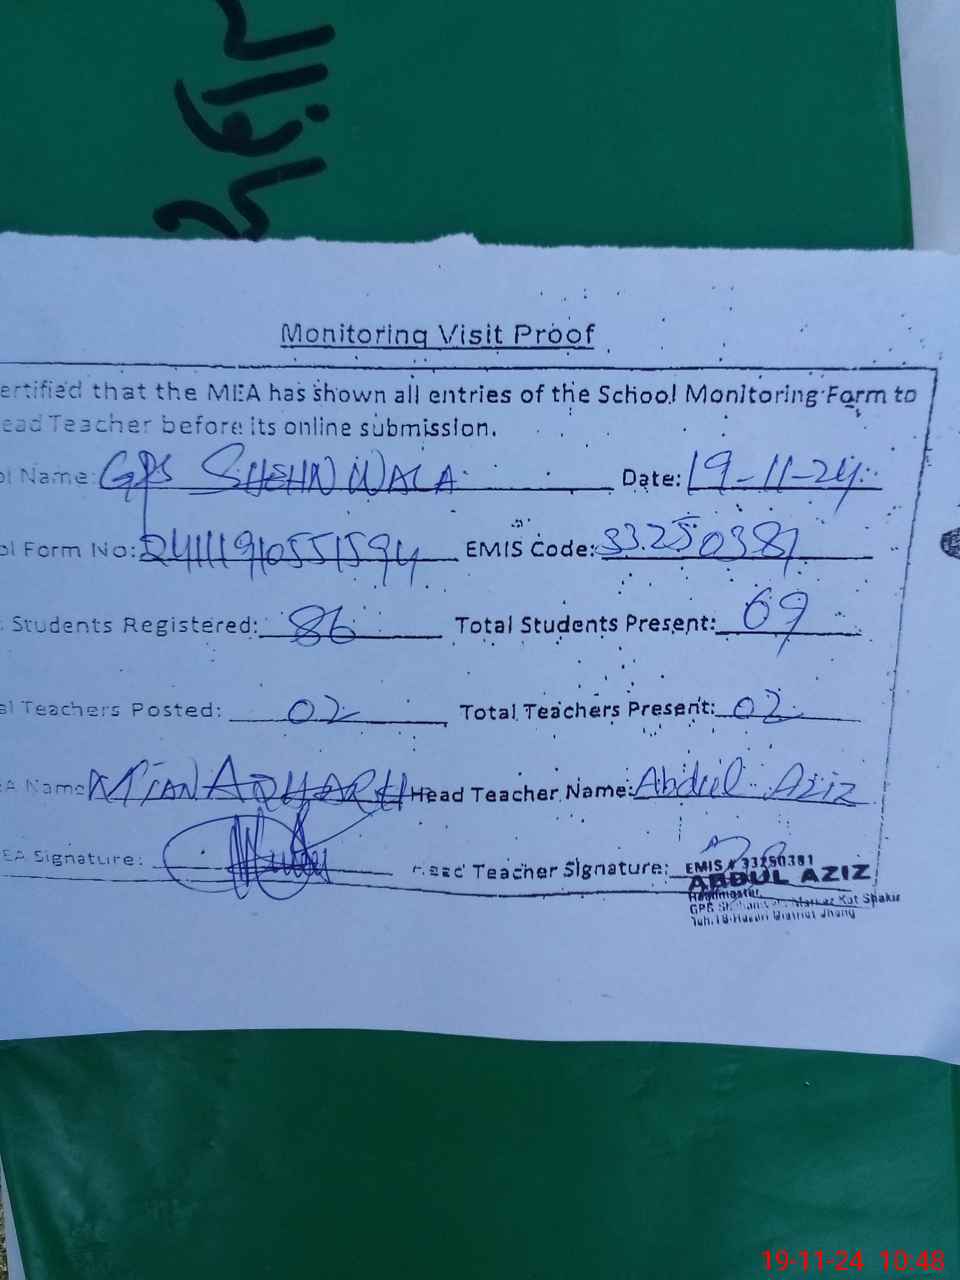 حاضری
Monitoring Visit Proof
ertified that the MEA has shown all entries of the School Monitoring Form to
ead Teacher before its online submission.
ol Name: GPS SHEHN WALA Date: 19-11-24
ol Form No: 24111910551594 EMIS Code: 33250381
Students Registered: 86 Total Students Present: 69
al Teachers Posted: 02 Total Teachers Present: 02
A Name MIAN AZHAR H Head Teacher Name: Abdul Aziz
EA Signature: Head Teacher Signature:
EMIS # 33250381
ABDUL AZIZ
Headmaster
GPS Markaz Kot Shakir
Teh. 18-Hazari District Jhang
19-11-24 10:48